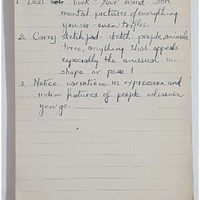 1. Best book - Your mind store
mental pictures of everything
you see - even trifles.
2. Carry sketch pad - sketch people, animals,
trees, anything that appeals
especially the unusual in
shape or pose!
3. Notice variations in expression and
features of people wherever
you go.